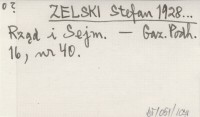 20
ZELSKI Stefan 1928...
Rząd i Sejm. — Gaz. Podh.
16, nr 40.